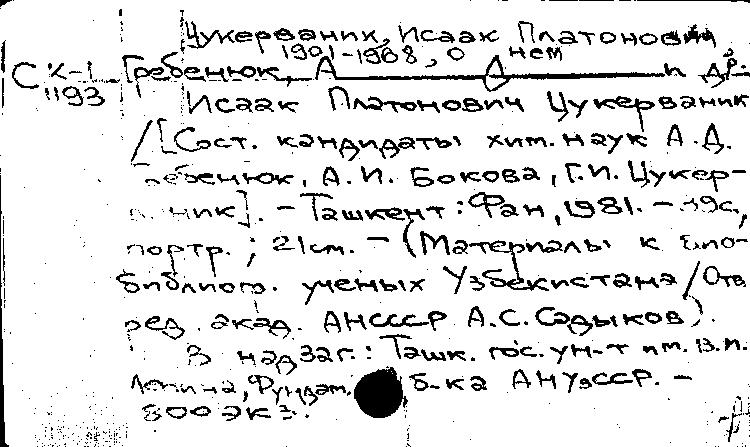 Цукерваник, Исаак Платонович,
1901-1968, о нем
С X-1 Гребенюк, А Д и др.
1193
Исаак Платонович Цукерваник
/[Сост. кандидаты хим. наук А.Д.
Гребенюк, А.И. Бокова, Г.И. Цукер-
ваник]. - Ташкент: Фан, 1981. - 39с.,
портр.; 21см. - (Материалы к био-
библиогр. ученых Узбекистана / Отв
ред. акад. АНСССР А.С. Садыков).
В надзаг.: Ташк. гос. ун-т им. В.И.
Ленина, Фундам. б-ка АНУзССР. -
800 экз.